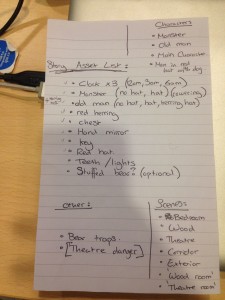 Characters
• Monster
• Old man
• Main Character
• Man in red hat with dog
Asset List:
• Clock x3 (2am, 3am, 6am)
• Monster (no hat, hat) (running)
• old man (no hat, hat, herring, hat)
• red herring
• chest
• Hand mirror
• key
• Red hat
• Teeth / lights
• Stuffed bear? (optional)
Other:
• Bear traps.
• [Theatre danger]
Scenes:
• Bedroom
• Wood
• Theatre
• Corridor
• Exterior
• Wood room
• Theatre room